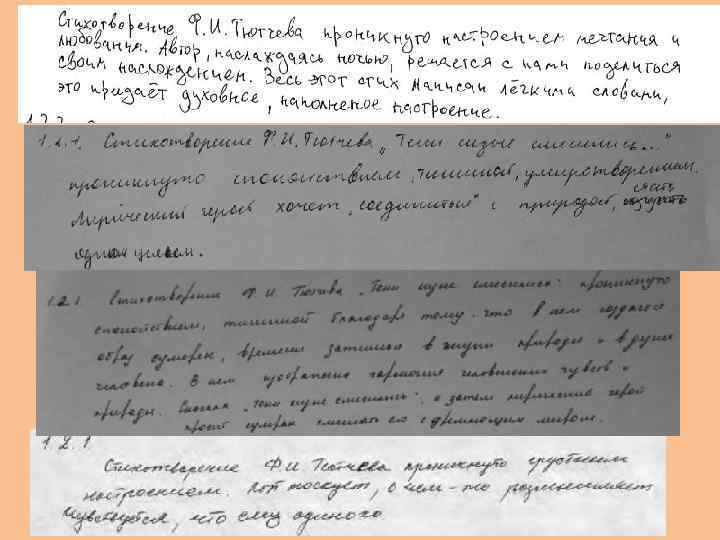 Стихотворение Ф.И. Тютчева проникнуто настроением мечтания и
любования. Автор, наслаждаясь ночью, решается с нами поделиться
своим наслаждением. Весь этот стих написан лёгкими словами,
это придаёт духовное, наполненое настроение.
1.2.1. Стихотворение Ф.И. Тютчева „Тени сизые смесились..."
проникнуто спокойствием, тишиной, умиротворением.
Лирический герой хочет „соединиться" с природой, стать
одним целым.
1.2.1. Стихотворение Ф.И. Тютчева „Тени сизые смесились" проникнуто
спокойствием, тишиной благодаря тому, что в нем создается
образ сумерек, времени затишья в жизни природы и в душе
человека. В нем изображена гармония человеческих чувств и
природы. Сначала „Тени сизые смесились", а затем лирический герой
просит сумрак смешать его с дремлющим миром.
1.2.1.
Стихотворение Ф.И. Тютчева проникнуто грустным
настроением. Поэт тоскует, о чем-то размышляет
Чувствуется, что ему одиноко.